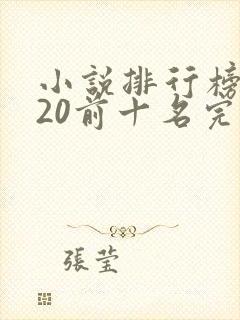 小說排行榜
20前十名完
張瑩